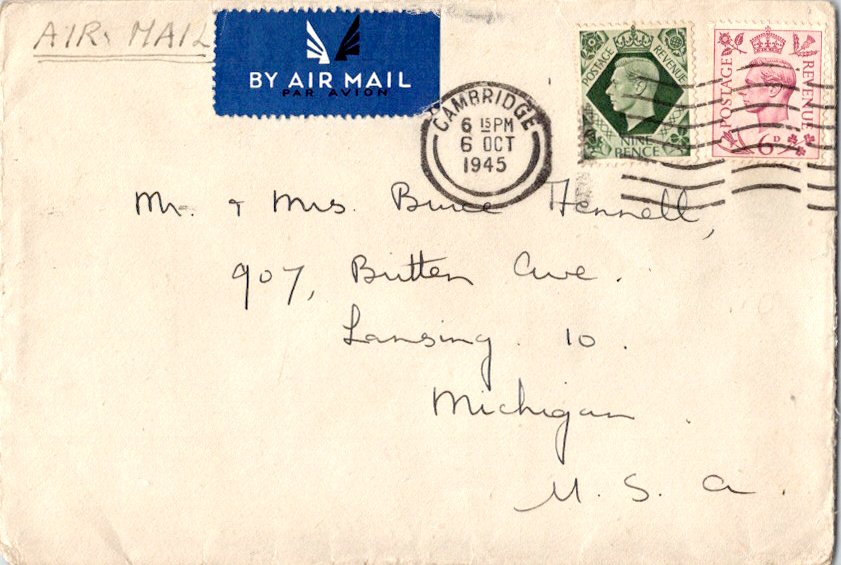 AIR MAIL
BY AIR MAIL
PAR AVION
CAMBRIDGE
6 15PM
6 OCT
1945
POSTAGE REVENUE
NINE PENCE
POSTAGE REVENUE
6D
Mr. & Mrs. Bruce Fennell,
907, Britten Ave.
Lansing. 10.
Michigan
U. S. A.